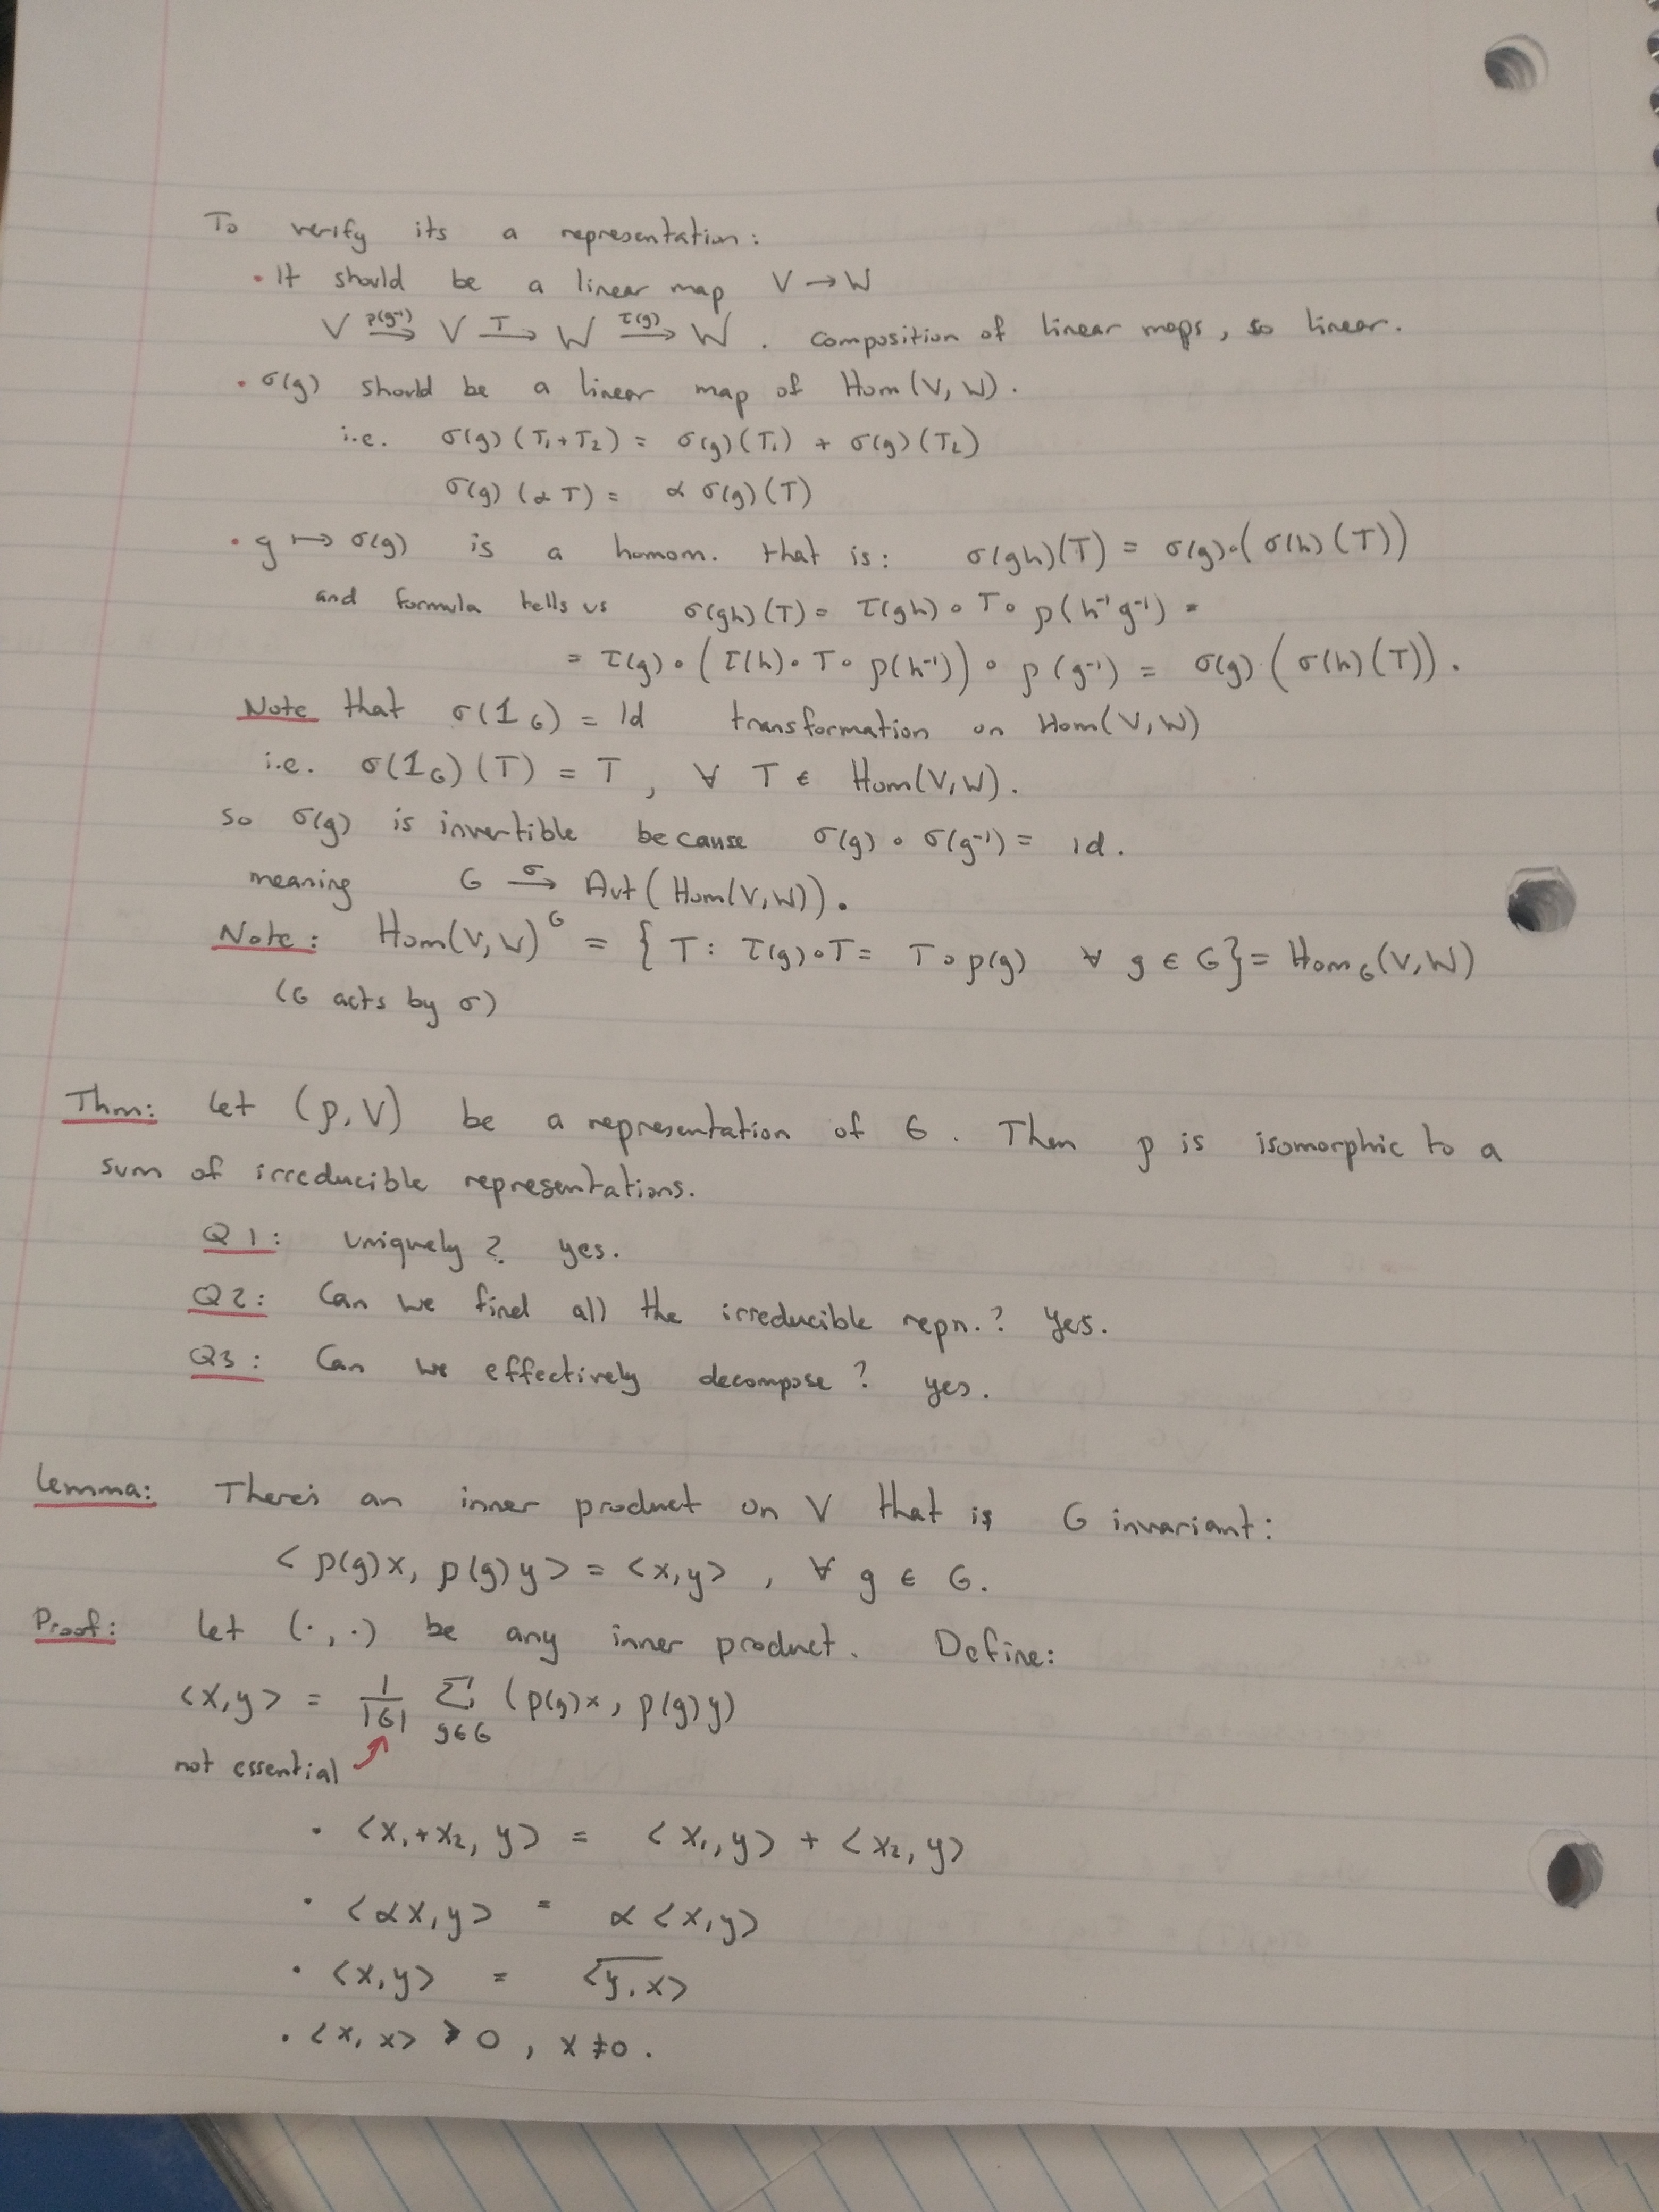 To verify its a representation:
• It should be a linear map V → W
V –ρ(g⁻¹)→ V –T→ W –τ(g)→ W . composition of linear maps, so linear.
• σ(g) should be a linear map of Hom(V, W).
i.e. σ(g)(T₁+T₂) = σ(g)(T₁) + σ(g)(T₂)
σ(g)(αT) = α σ(g)(T)
• g ↦ σ(g) is a homom. that is: σ(gh)(T) = σ(g)∘(σ(h)(T))
and formula tells us σ(gh)(T) = τ(gh)∘T∘ρ(h⁻¹g⁻¹) =
= τ(g)∘(τ(h)∘T∘ρ(h⁻¹))∘ρ(g⁻¹) = σ(g)(σ(h)(T)).
Note that σ(1_G) = Id transformation on Hom(V, W)
i.e. σ(1_G)(T) = T, ∀ T ∈ Hom(V, W).
so σ(g) is invertible because σ(g)∘σ(g⁻¹) = id.
meaning G –σ→ Aut(Hom(V, W)).
Note: Hom(V, W)^G = {T: τ(g)∘T = T∘ρ(g) ∀ g ∈ G} = Hom_G(V, W)
(G acts by σ)
Thm: Let (ρ, V) be a representation of G. Then ρ is isomorphic to a
sum of irreducible representations.
Q1: Uniquely? yes.
Q2: Can we find all the irreducible repn.? Yes.
Q3: Can we effectively decompose? yes.
Lemma: There's an inner product on V that is G invariant:
<ρ(g)x, ρ(g)y> = <x,y>, ∀ g ∈ G.
Proof: Let (·,·) be any inner product. Define:
<x,y> = 1/|G| Σ_{g∈G} (ρ(g)x, ρ(g)y)
not essential
• <x₁+x₂, y> = <x₁,y> + <x₂,y>
• <αx,y> = α<x,y>
• <x,y> = \overline{<y,x>}
• <x,x> > 0, x ≠ 0.